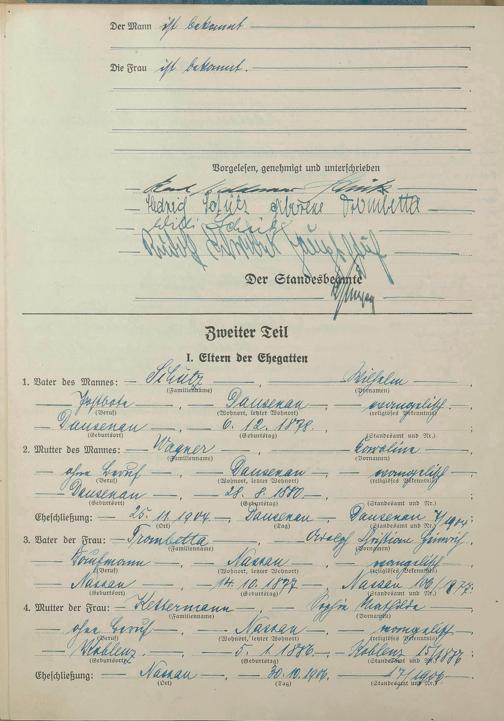 Der Mann ist bekannt
Die Frau ist bekannt.
Vorgelesen, genehmigt und unterschrieben
Karl Schütz
Hedwig Schütz geborene Trombetta
Rudolf
Der Standesbeamte
Zweiter Teil
I. Eltern der Ehegatten
1. Vater des Mannes: Schütz, Wilhelm
(Familienname) (Vornamen)
Postbote, Dausenau, evangelisch
(Beruf) (Wohnort, letzter Wohnort) (religiöses Bekenntnis)
Dausenau, 6. 12. 1878.
(Geburtsort) (Geburtstag) (Standesamt und Nr.)
2. Mutter des Mannes: Wagner, Karoline
(Familienname) (Vornamen)
ohne Beruf, Dausenau, evangelisch
(Beruf) (Wohnort, letzter Wohnort) (religiöses Bekenntnis)
Dausenau, 28. 8. 1880
(Geburtsort) (Geburtstag) (Standesamt und Nr.)
Eheschließung: 25. 11. 1904, Dausenau, Dausenau 7/1904.
(Ort) (Tag) (Standesamt und Nr.)
3. Vater der Frau: Trombetta, Christian Heinrich.
(Familienname) (Vornamen)
Kaufmann, Nassau, evangelisch
(Beruf) (Wohnort, letzter Wohnort) (religiöses Bekenntnis)
Nassau, 14. 10. 1877, Nassau 106/1877.
(Geburtsort) (Geburtstag) (Standesamt und Nr.)
4. Mutter der Frau: Klettermann, Mathilde
(Familienname) (Vornamen)
ohne Beruf, Nassau, evangelisch
(Beruf) (Wohnort, letzter Wohnort) (religiöses Bekenntnis)
Koblenz, 5. 1. 1886, Koblenz 15/1886
(Geburtsort) (Geburtstag) (Standesamt und Nr.)
Eheschließung: Nassau, 30. 10. 1906, 17/1906
(Ort) (Tag) (Standesamt und Nr.)